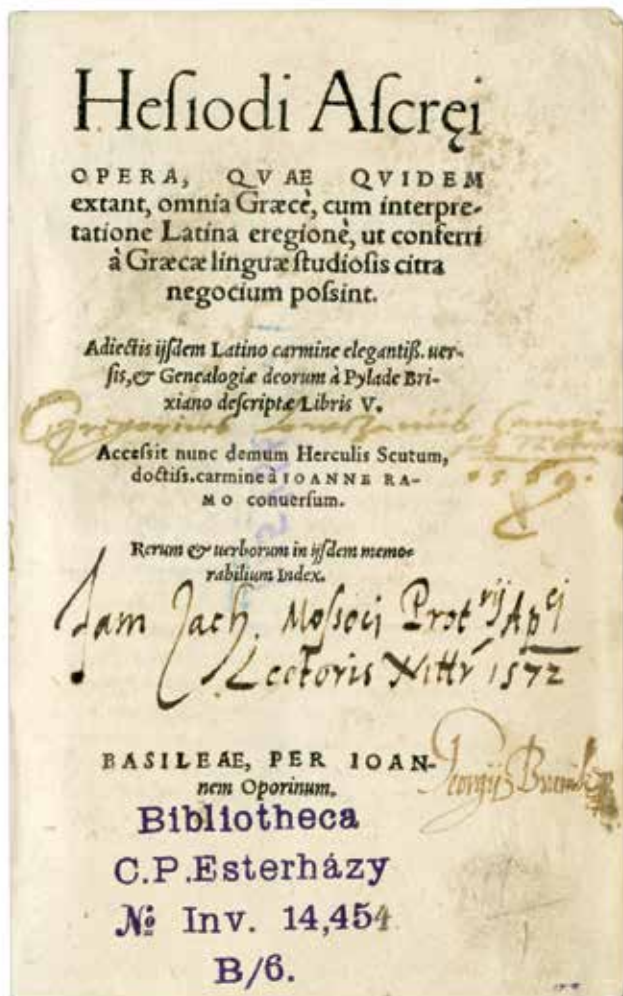 Heſiodi Aſcręi
OPERA, QVAE QVIDEM
extant, omnia Græcè, cum interpre-
tatione Latina eregionè, ut conferri
à Græcæ linguæ ſtudioſis citra
negocium poſsint.
Adiectis ijſdem Latino carmine elegantiß. uer-
ſis, & Genealogiæ deorum à Pylade Bri-
xiano deſcriptæ Libris V.
1569.
Acceſsit nunc demum Herculis Scutum,
doctiſs. carmine à IOANNE RA-
MO conuerſum.
Rerum & uerborum in ijſdem memo-
rabilium Index.
Jam Zach. Moſſocij Prot rij Ap ci
Lectoris Nittr 1572
BASILEAE, PER IOAN-
nem Oporinum.
Georgij
Bibliotheca
C.P.Esterházy
№ Inv. 14,454
B/6.